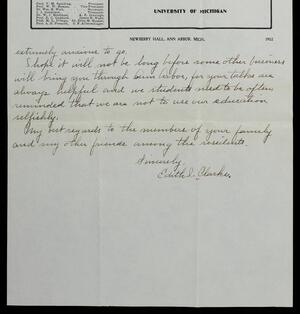 UNIVERSITY OF MICHIGAN
NEWBERRY HALL, ANN ARBOR, MICH.
extremely anxious to go.
I hope it will not be long before some other business
will bring you through Ann Arbor, for your talks are
always helpful and we students need to be often
reminded that we are not to use our education
selfishly.
My best regards to the members of your family
and my other friends among the residents.
Sincerely,
Edith I. Clarke.